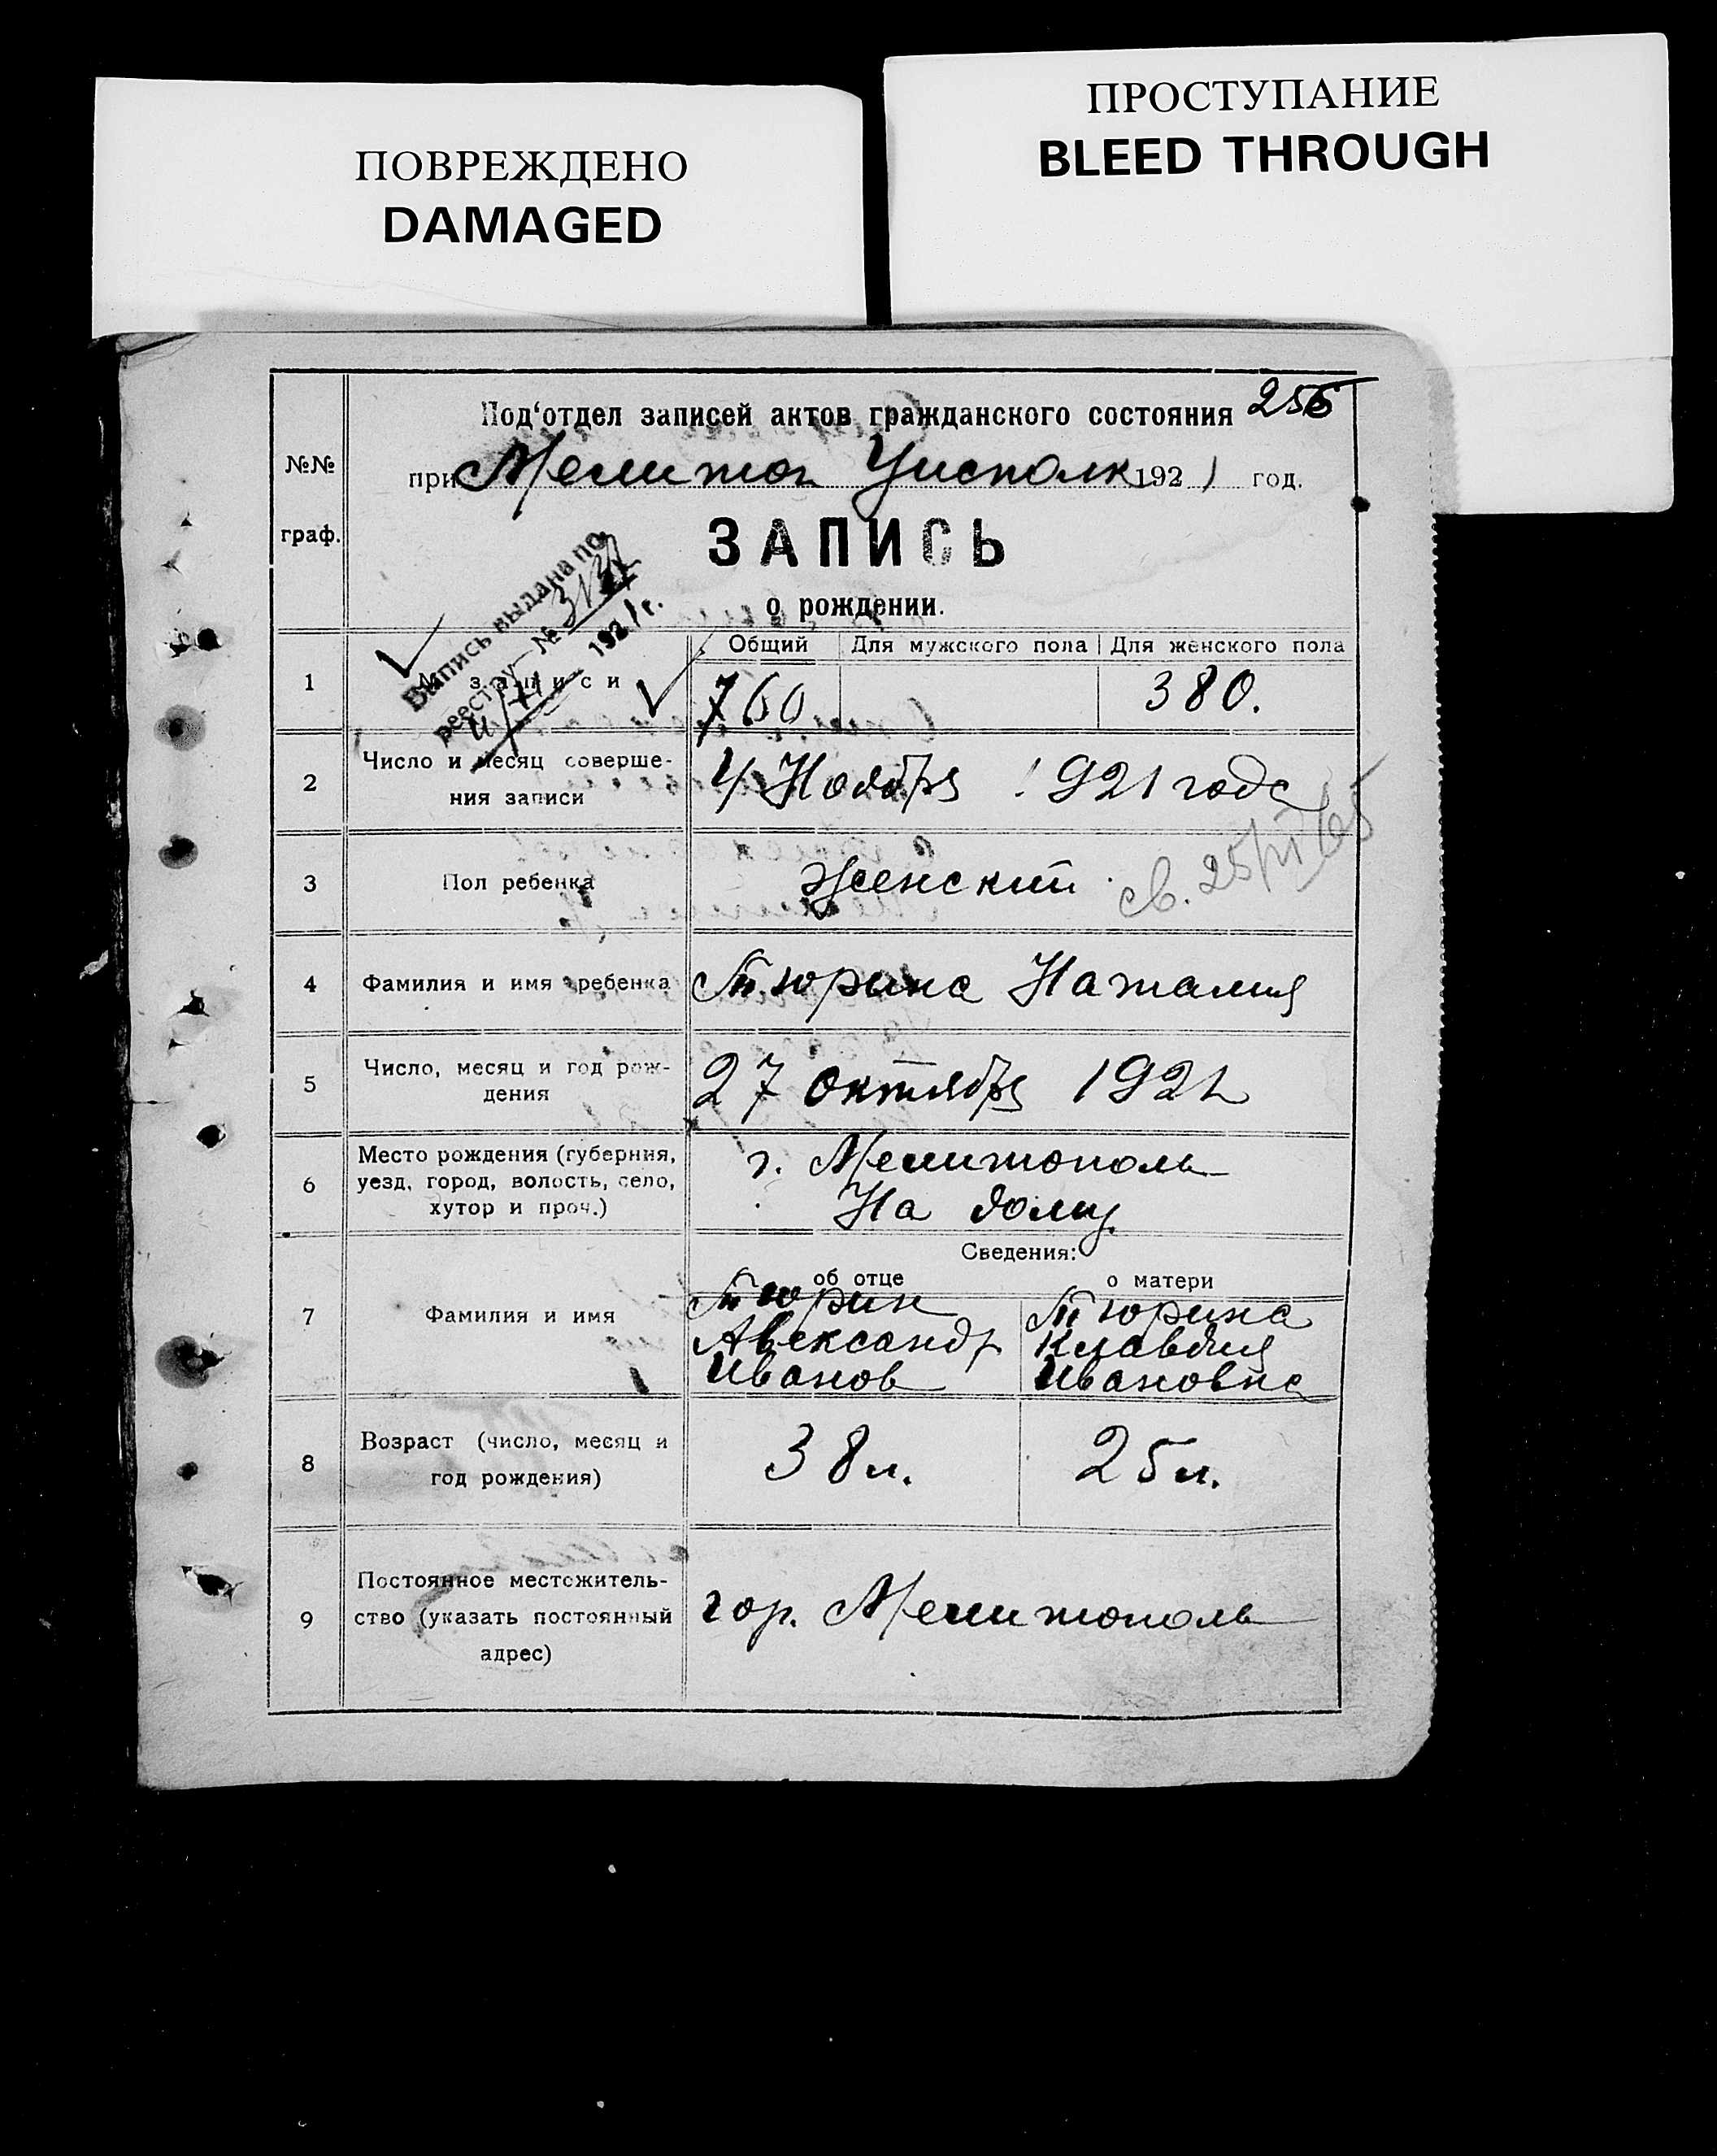 ПОВРЕЖДЕНО
DAMAGED
ПРОСТУПАНИЕ
BLEED THROUGH
256
Под'отдел записей актов гражданского состояния
при Мелитоп Уисполк 1921 год.
№№
граф.
ЗАПИСЬ
о рождении.
Выпись выдана по
реестру №
4/XI 1921 г.
Общий Для мужского пола Для женского пола
1 № записи 760 380.
2 Число и месяц соверше-
ния записи
4 Ноября 1921 года
3 Пол ребенка Женский
св. 25/VI 65
4 Фамилия и имя ребенка Тюрина Наталия
5 Число, месяц и год рож-
дения
27 октября 1921
6 Место рождения (губерния,
уезд, город, волость, село,
хутор и проч.)
г. Мелитополь
На дому
Сведения:
об отце о матери
7 Фамилия и имя
Тюрин
Александр
Иванов
Тюрина
Клавдия
Ивановна
8 Возраст (число, месяц и
год рождения)
38 л. 25 л.
9 Постоянное местожитель-
ство (указать постоянный
адрес)
гор. Мелитополь